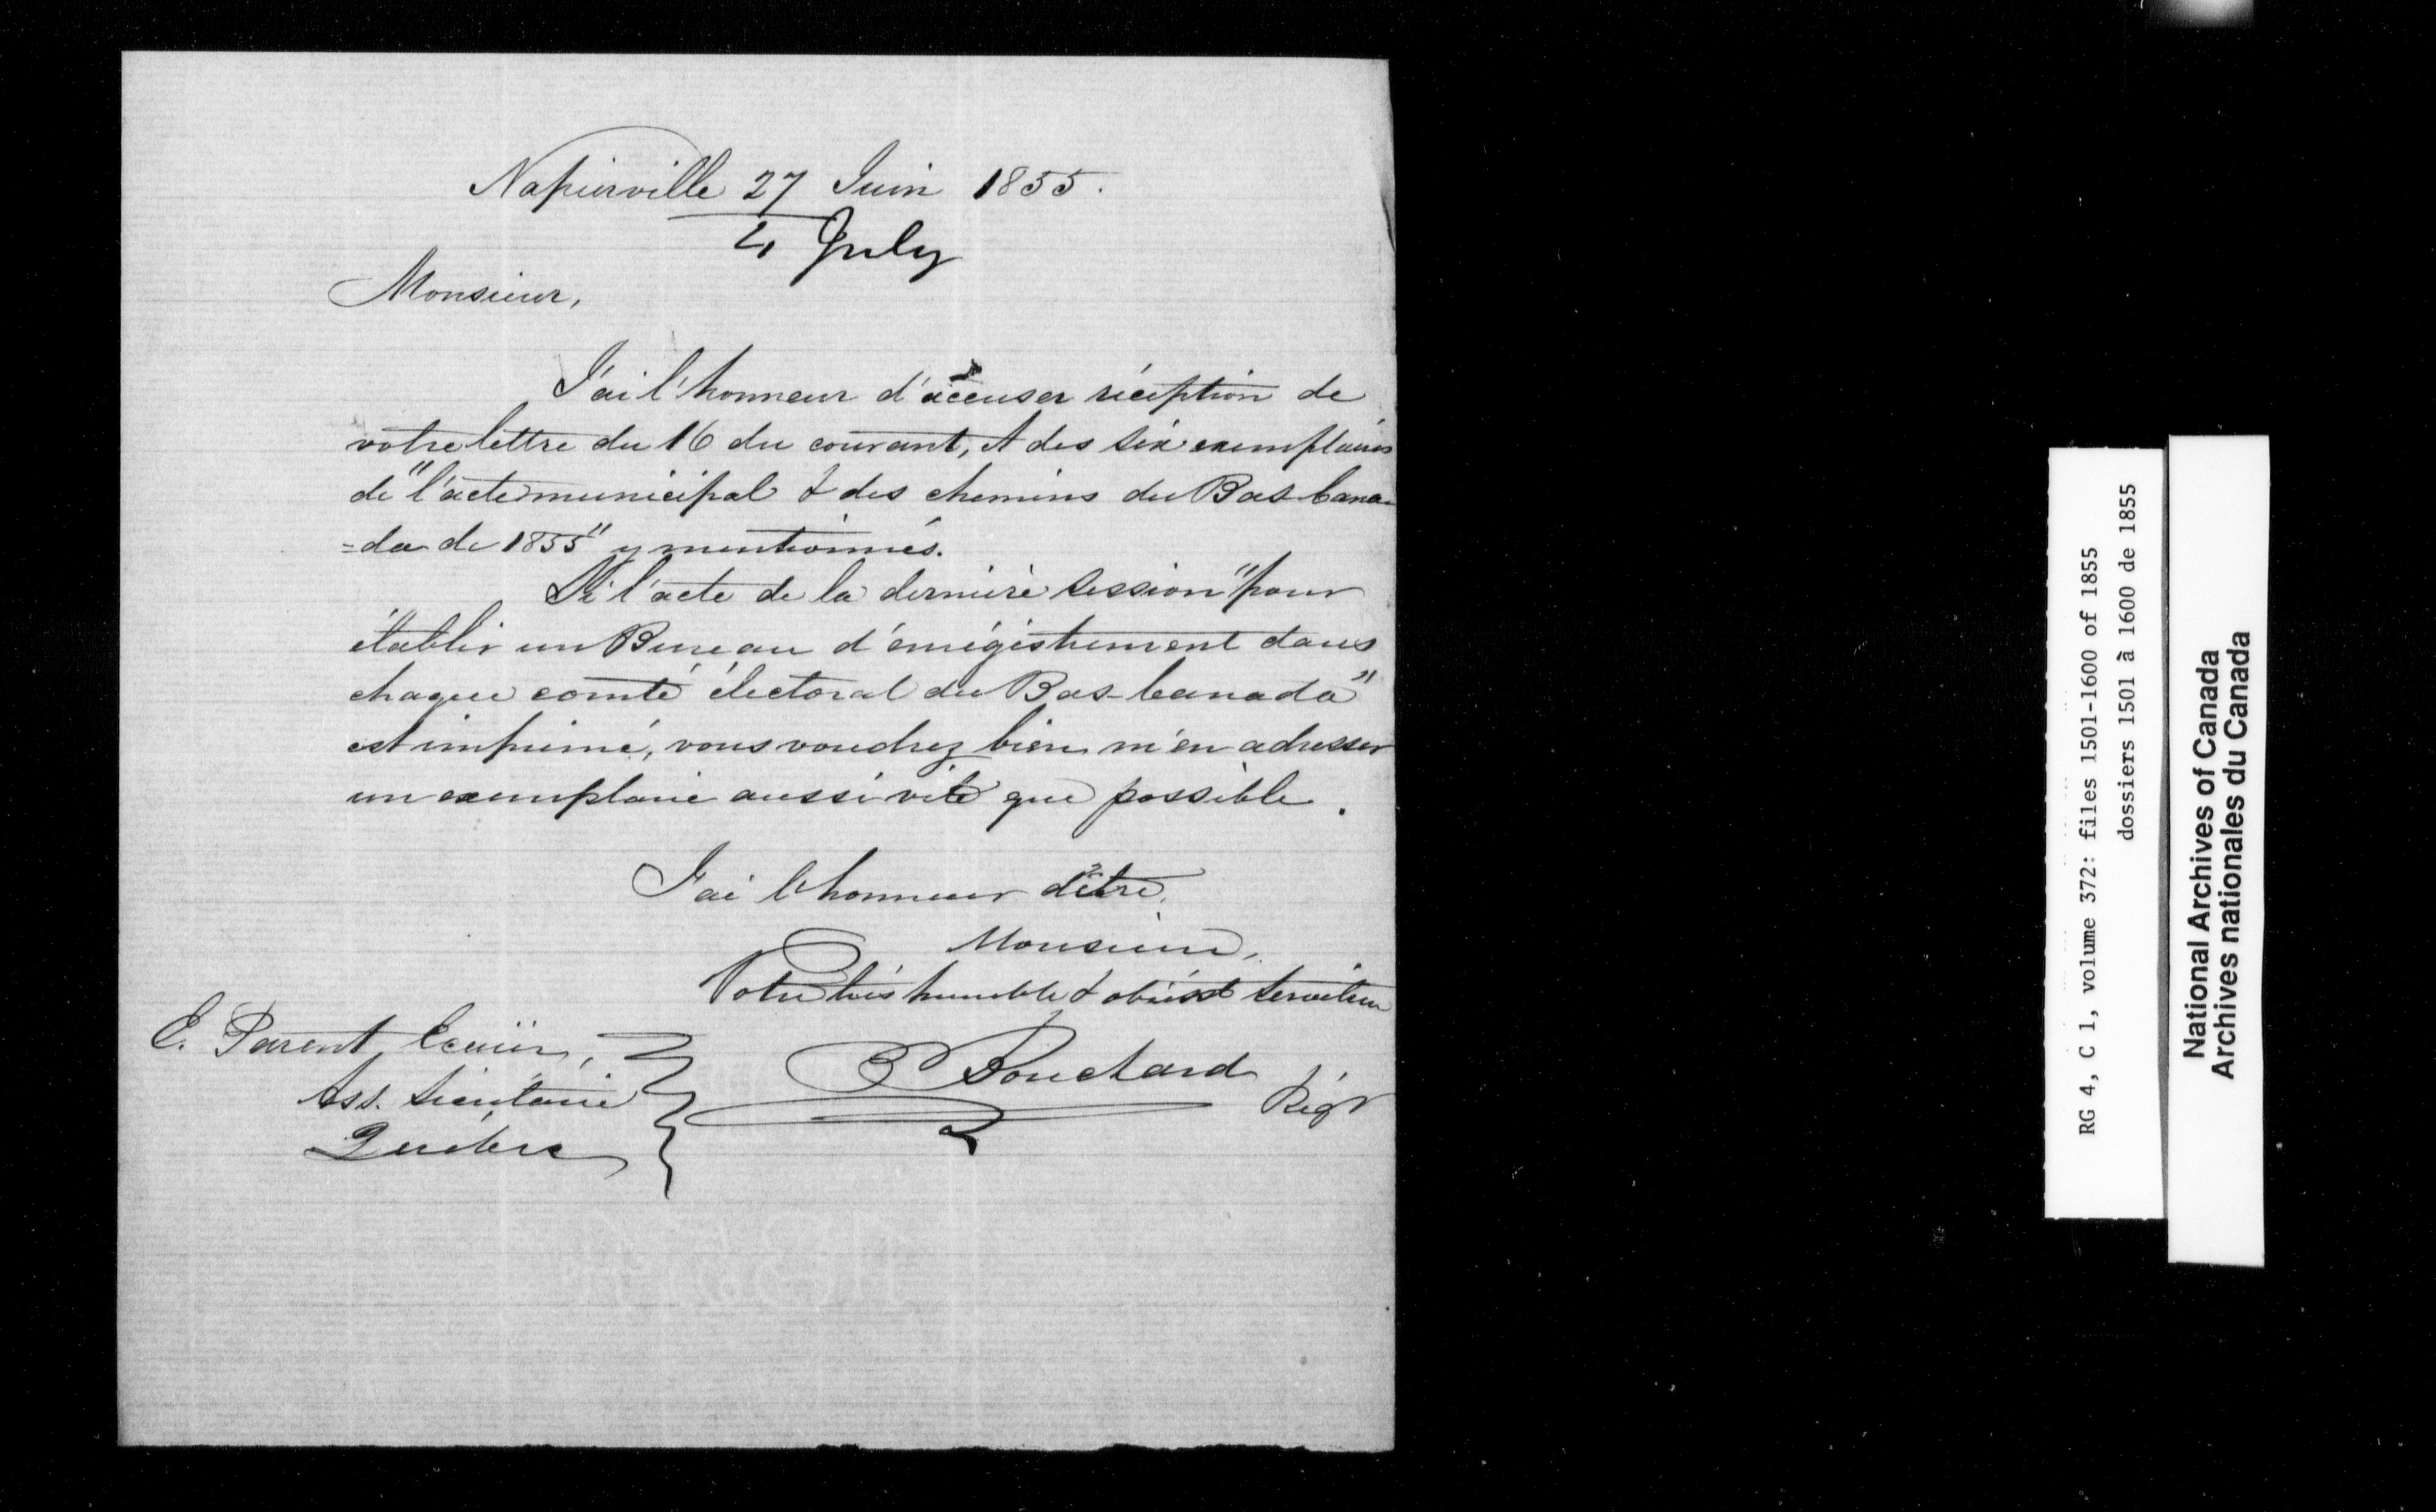 Napierville 27 Juin 1855.
4 July
Monsieur,
J'ai l'honneur d'accuser réception de
votre lettre du 16 du courant, et des six exemplaires
de "l'acte municipal & des chemins du Bas-Cana-
=da de 1855" y mentionnés.
Si l'acte de la dernière session "pour
établir un Bureau d'enrégistrement dans
chaque comté électoral du Bas-Canada"
est imprimé, vous voudrez bien m'en adresser
un exemplaire aussi vite que possible.
J'ai l'honneur d'être,
Monsieur,
Votre très humble & obéisst serviteur
Bouchard
Régr
E. Parent Ecuier,
Ass. Secrétaire
Québec
RG 4, C 1, volume 372: files 1501-1600 of 1855
dossiers 1501 à 1600 de 1855
National Archives of Canada
Archives nationales du Canada